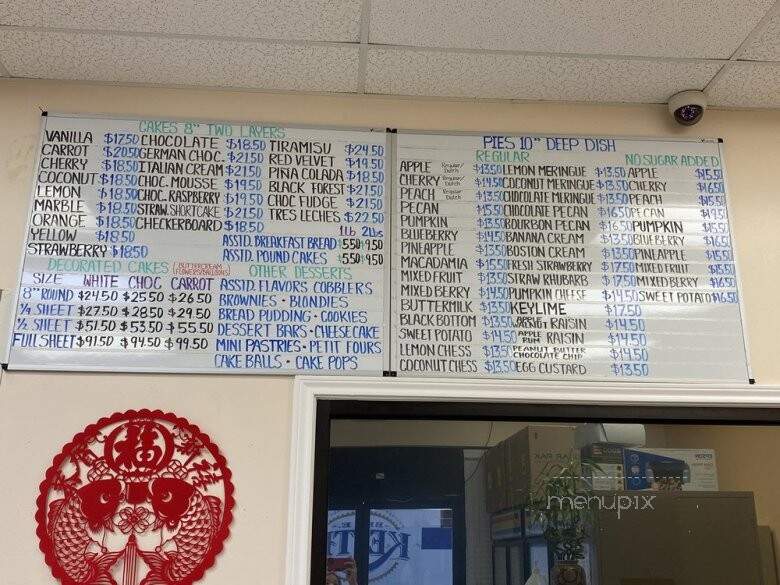 CAKES 8" TWO LAYERS
VANILLA $17.50 CHOCOLATE $18.50 TIRAMISU $24.50
CARROT $20.50 GERMAN CHOC. $21.50 RED VELVET $19.50
CHERRY $18.50 ITALIAN CREAM $21.50 PIÑA COLADA $18.50
COCONUT $18.50 CHOC. MOUSSE $19.50 BLACK FOREST $21.50
LEMON $18.50 CHOC. RASPBERRY $19.50 CHOC FUDGE $21.50
MARBLE $18.50 STRAW. SHORTCAKE $21.50 TRES LECHES $22.50
ORANGE $18.50 CHECKERBOARD $18.50
YELLOW $18.50 1lb 2lbs
STRAWBERRY $18.50 ASSTD. BREAKFAST BREAD $5.50 $9.50
ASSTD. POUND CAKES $5.50 $9.50
DECORATED CAKES (BUTTERCREAM FLOWERS/BALLOONS)
SIZE WHITE CHOC CARROT
8" ROUND $24.50 $25.50 $26.50
¼ SHEET $27.50 $28.50 $29.50
½ SHEET $51.50 $53.50 $55.50
FULL SHEET $91.50 $94.50 $99.50
OTHER DESSERTS
ASSTD. FLAVORS COBBLERS
BROWNIES • BLONDIES
BREAD PUDDING • COOKIES
DESSERT BARS • CHEESECAKE
MINI PASTRIES • PETIT FOURS
CAKE BALLS • CAKE POPS
PIES 10" DEEP DISH
REGULAR NO SUGAR ADDED
APPLE Regular/Dutch $13.50 LEMON MERINGUE $13.50 APPLE $15.50
CHERRY Regular/Dutch $14.50 COCONUT MERINGUE $13.50 CHERRY $16.50
PEACH Regular/Dutch $13.50 CHOCOLATE MERINGUE $13.50 PEACH $15.50
PECAN $15.50 CHOCOLATE PECAN $16.50 PECAN $19.50
PUMPKIN $13.50 BOURBON PECAN $16.50 PUMPKIN $15.50
BLUEBERRY $14.50 BANANA CREAM $13.50 BLUEBERRY $16.50
PINEAPPLE $13.50 BOSTON CREAM $13.50 PINEAPPLE $15.50
MACADAMIA $15.50 FRESH STRAWBERRY $17.50 MIXED FRUIT $15.50
MIXED FRUIT $13.50 STRAW RHUBARB $17.50 MIXED BERRY $16.50
MIXED BERRY $14.50 PUMPKIN CHEESE $14.50 SWEET POTATO $16.50
BUTTERMILK $13.50 KEYLIME $17.50
BLACK BOTTOM $13.50 APPLE WALNUT RAISIN $14.50
SWEET POTATO $14.50 APPLE RUM RAISIN $14.50
LEMON CHESS $13.50 PEANUT BUTTER CHOCOLATE CHIP $14.50
COCONUT CHESS $13.50 EGG CUSTARD $13.50
福
menupix